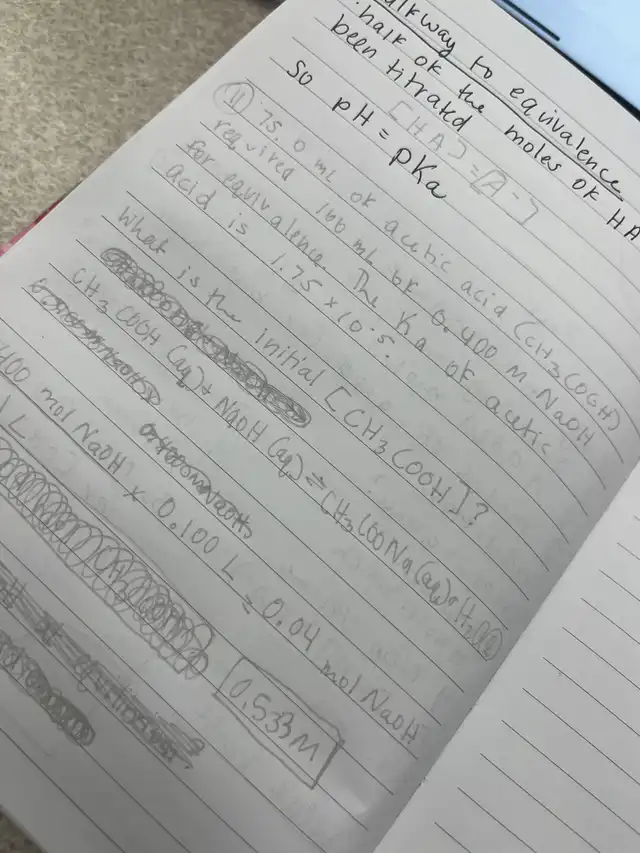 to equivalence
half of the moles of HA
been titrated
[HA] = [A-]
So pH = pKa
(11) 75.0 mL of acetic acid (CH3COOH)
required 100 mL of 0.400 M NaOH
for equivalence. The Ka of acetic
acid is 1.75 x 10-5.
What is the initial [CH3COOH]?
CH3COOH (aq) + NaOH (aq) ⇌ CH3COONa(aq) + H2O(l)
400 mol NaOH x 0.100 L = 0.04 mol NaOH
L
0.533 M